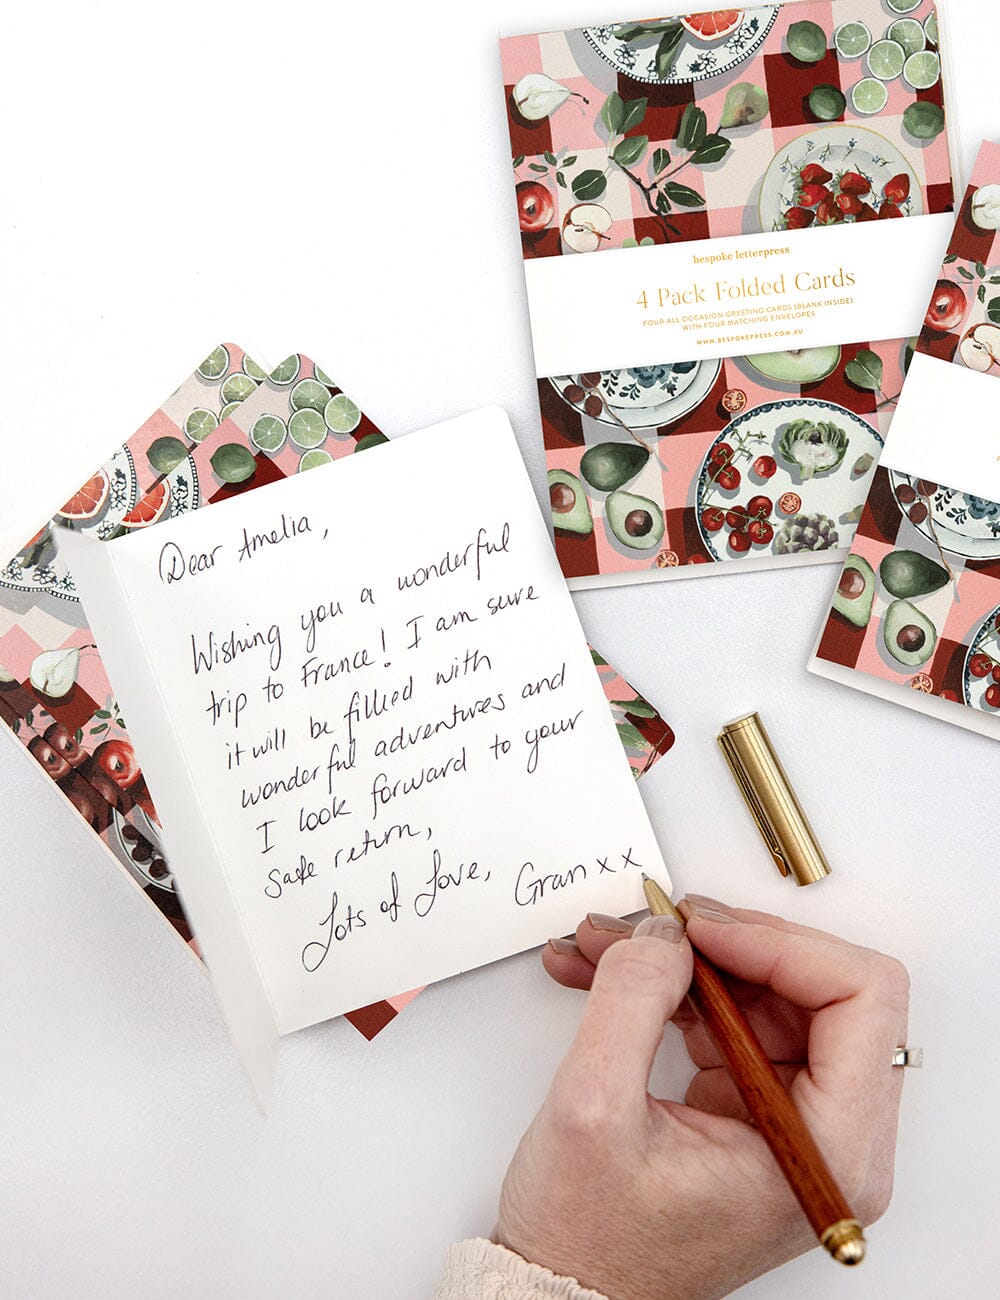 bespoke letterpress
4 Pack Folded Cards
FOUR ALL OCCASION GREETING CARDS (BLANK INSIDE)
WITH FOUR MATCHING ENVELOPES
WWW.BESPOKEPRESS.COM.AU
Dear Amelia,
Wishing you a wonderful
trip to France! I am sure
it will be filled with
wonderful adventures and
I look forward to your
safe return,
Lots of Love, Gran x x